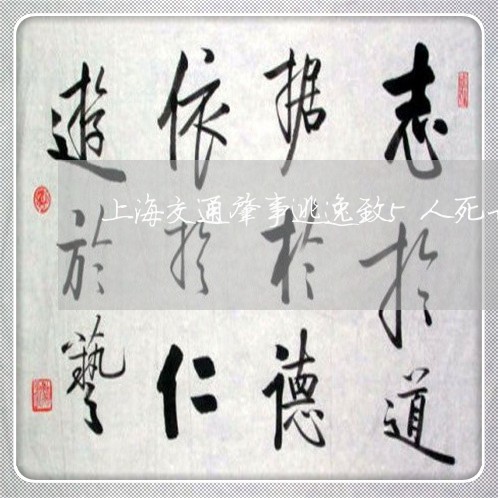 志於道
据於德
依於仁
遊於藝
上海交通肇事逃逸致5人死